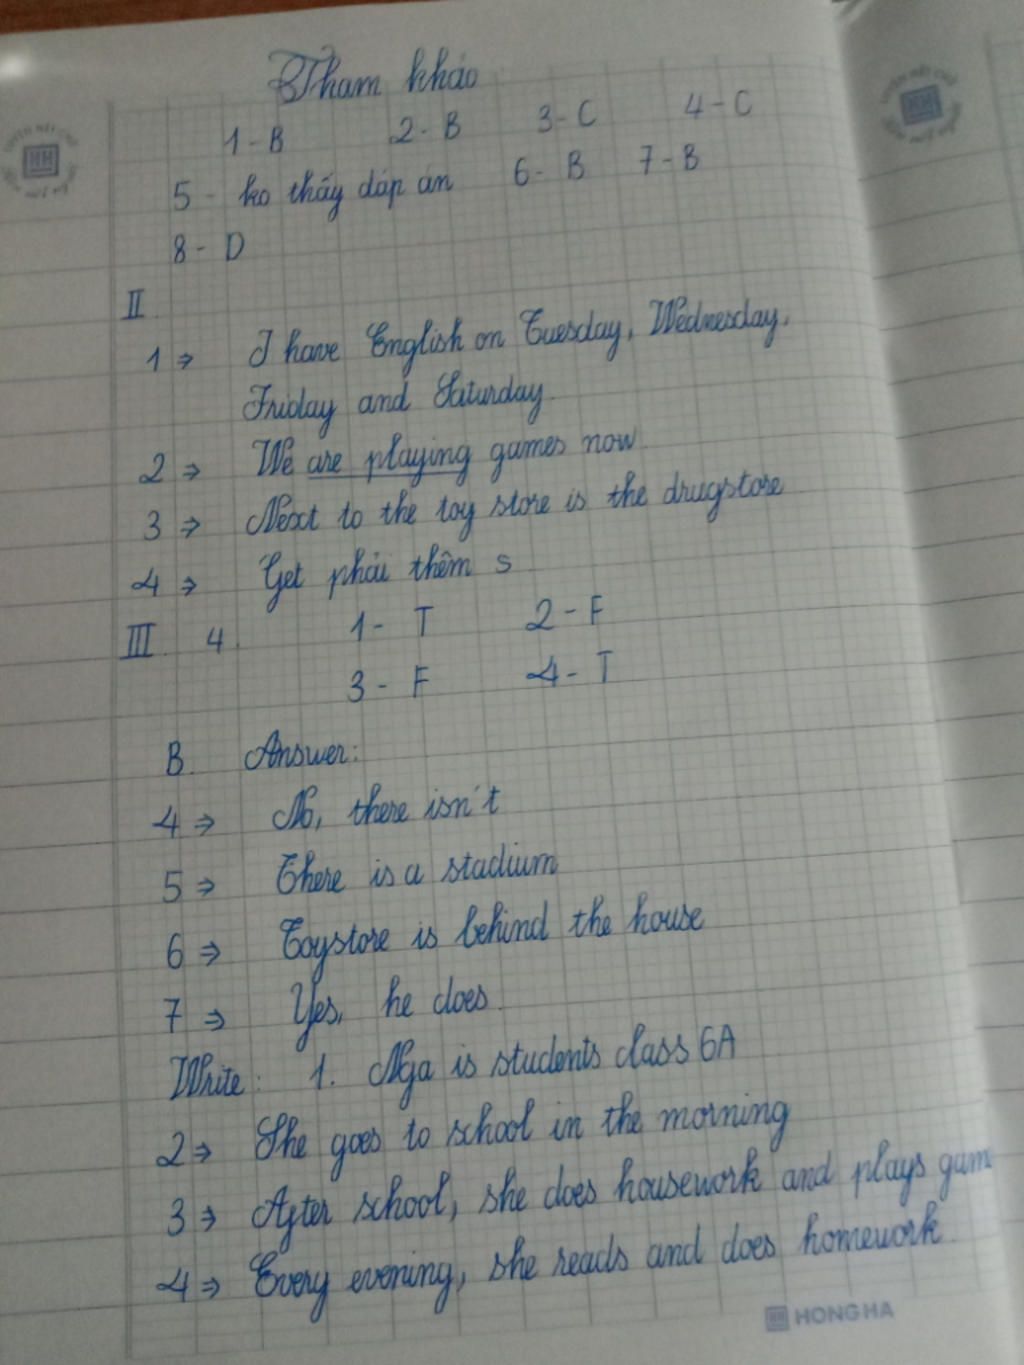 Tham khảo
1-B 2-B 3-C 4-C
5- ko thấy đáp án 6- B 7-B
8- D
II
1 ⇒ I have English on Tuesday, Wednesday,
Friday and Saturday.
2 ⇒ We are playing games now
3 ⇒ Next to the toy store is the drugstore
4 ⇒ Get phải thêm s
III 4. 1- T 2-F
3- F 4- T
B. Answer:
4 ⇒ No, there isn't
5 ⇒ There is a stadium
6 ⇒ Toystore is behind the house
7 ⇒ Yes, he does
Write: 1. Nga is students class 6A
2 ⇒ She goes to school in the morning
3 ⇒ After school, she does housework and plays gam
4 ⇒ Every evening, she reads and does homework.
HH HONG HA